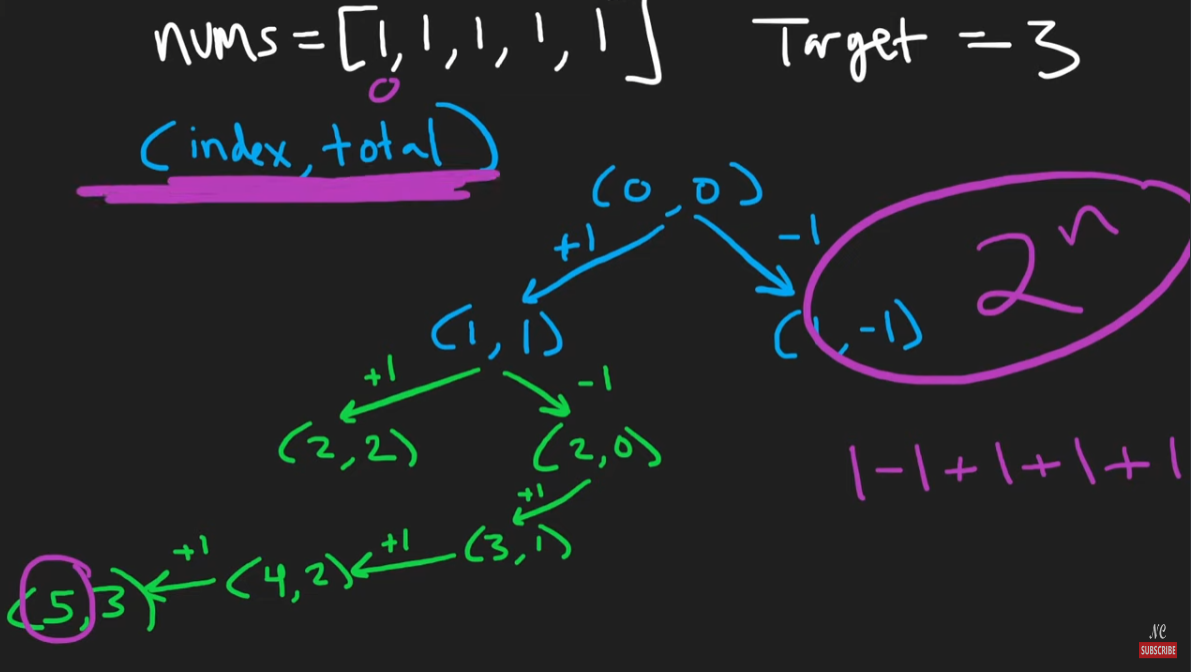 nums = [1, 1, 1, 1, 1] Target = 3
0
(index, total)
(0, 0)
+1 -1
2^n
(1, 1) (1, -1)
+1 -1
(2, 2) (2, 0)
1 - 1 + 1 + 1 + 1
+1
(5, 3) +1 (4, 2) +1 (3, 1)
NC
SUBSCRIBE